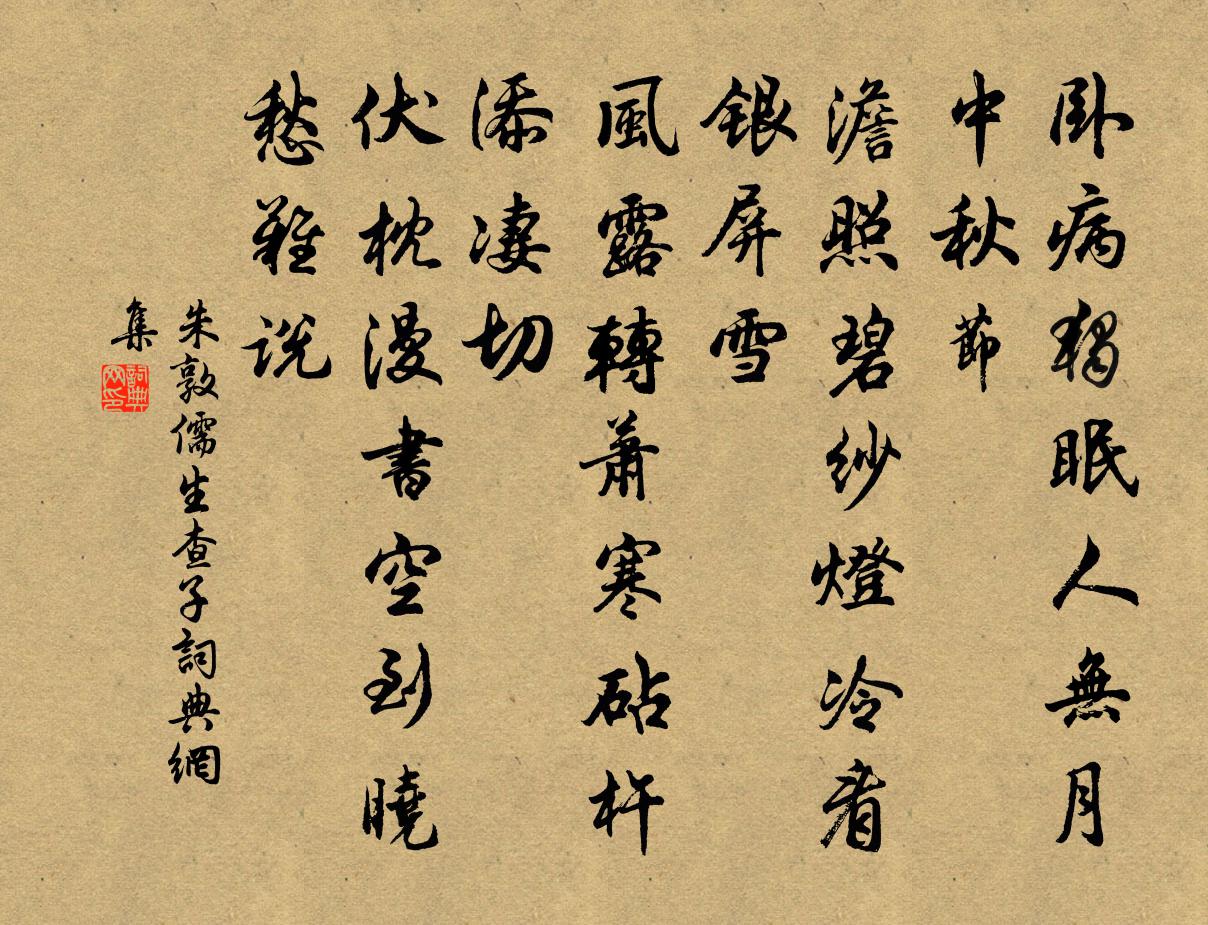 卧病獨眠人無月
中秋節
澹照碧紗燈冷看
銀屏雪
風露轉蕭寒砧杵
添凄切
伏枕漫書空到曉
愁難説
朱敦儒生查子詞典網
集
詞典網印